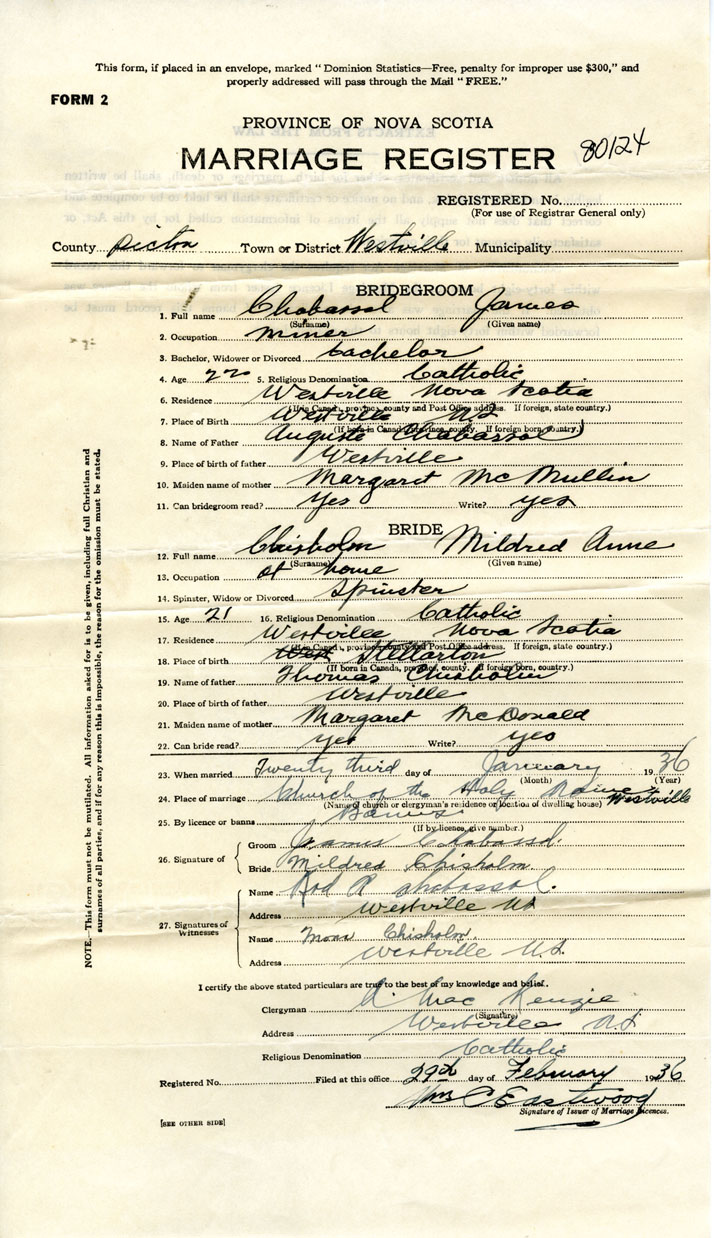 This form, if placed in an envelope, marked "Dominion Statistics—Free, penalty for improper use $300," and
properly addressed will pass through the Mail "FREE."
FORM 2
PROVINCE OF NOVA SCOTIA
MARRIAGE REGISTER 80124
REGISTERED No.
(For use of Registrar General only)
County Pictou Town or District Westville Municipality
BRIDEGROOM
1. Full name Chabassol James
(Surname) (Given name)
2. Occupation miner
3. Bachelor, Widower or Divorced bachelor
4. Age 22 5. Religious Denomination Catholic
6. Residence Westville Nova Scotia
(If in Canada, province, county and Post Office address. If foreign, state country.)
7. Place of Birth Westville NS
(If born in Canada, province, county. If foreign born, country.)
8. Name of Father Auguste Chabassol
9. Place of birth of father Westville
10. Maiden name of mother Margaret McMullin
11. Can bridegroom read? Yes Write? yes
BRIDE
12. Full name Chisholm Mildred Anne
(Surname) (Given name)
13. Occupation at home
14. Spinster, Widow or Divorced Spinster
15. Age 21 16. Religious Denomination Catholic
17. Residence Westville Nova Scotia
(If in Canada, province, county and Post Office address. If foreign, state country.)
18. Place of birth West Stellarton
(If born in Canada, province, county. If foreign born, country.)
19. Name of father Thomas Chisholm
20. Place of birth of father Westville
21. Maiden name of mother Margaret McDonald
22. Can bride read? yes Write? yes
23. When married Twenty third day of January 1936
(Month) (Year)
24. Place of marriage Church of the Holy Name Westville
(Name of church or clergyman's residence or location of dwelling house)
25. By licence or banns Banns
(If by licence, give number.)
26. Signature of
Groom James Chabassol.
Bride Mildred Chisholm
27. Signatures of Witnesses
Name Rod R Chabassol.
Address Westville NS
Name Mona Chisholm.
Address Westville N.S.
I certify the above stated particulars are true to the best of my knowledge and belief.
Clergyman R. MacKenzie
(Signature)
Address Westville N.S
Religious Denomination Catholic
Registered No. Filed at this office 29th day of February 1936
Wm C Eastwood
Signature of Issuer of Marriage Licences.
[SEE OTHER SIDE]
NOTE.—This form must not be mutilated. All information asked for is to be given, including full Christian and
surnames of all parties, and if for any reason this is impossible, the reason for the omission must be stated.